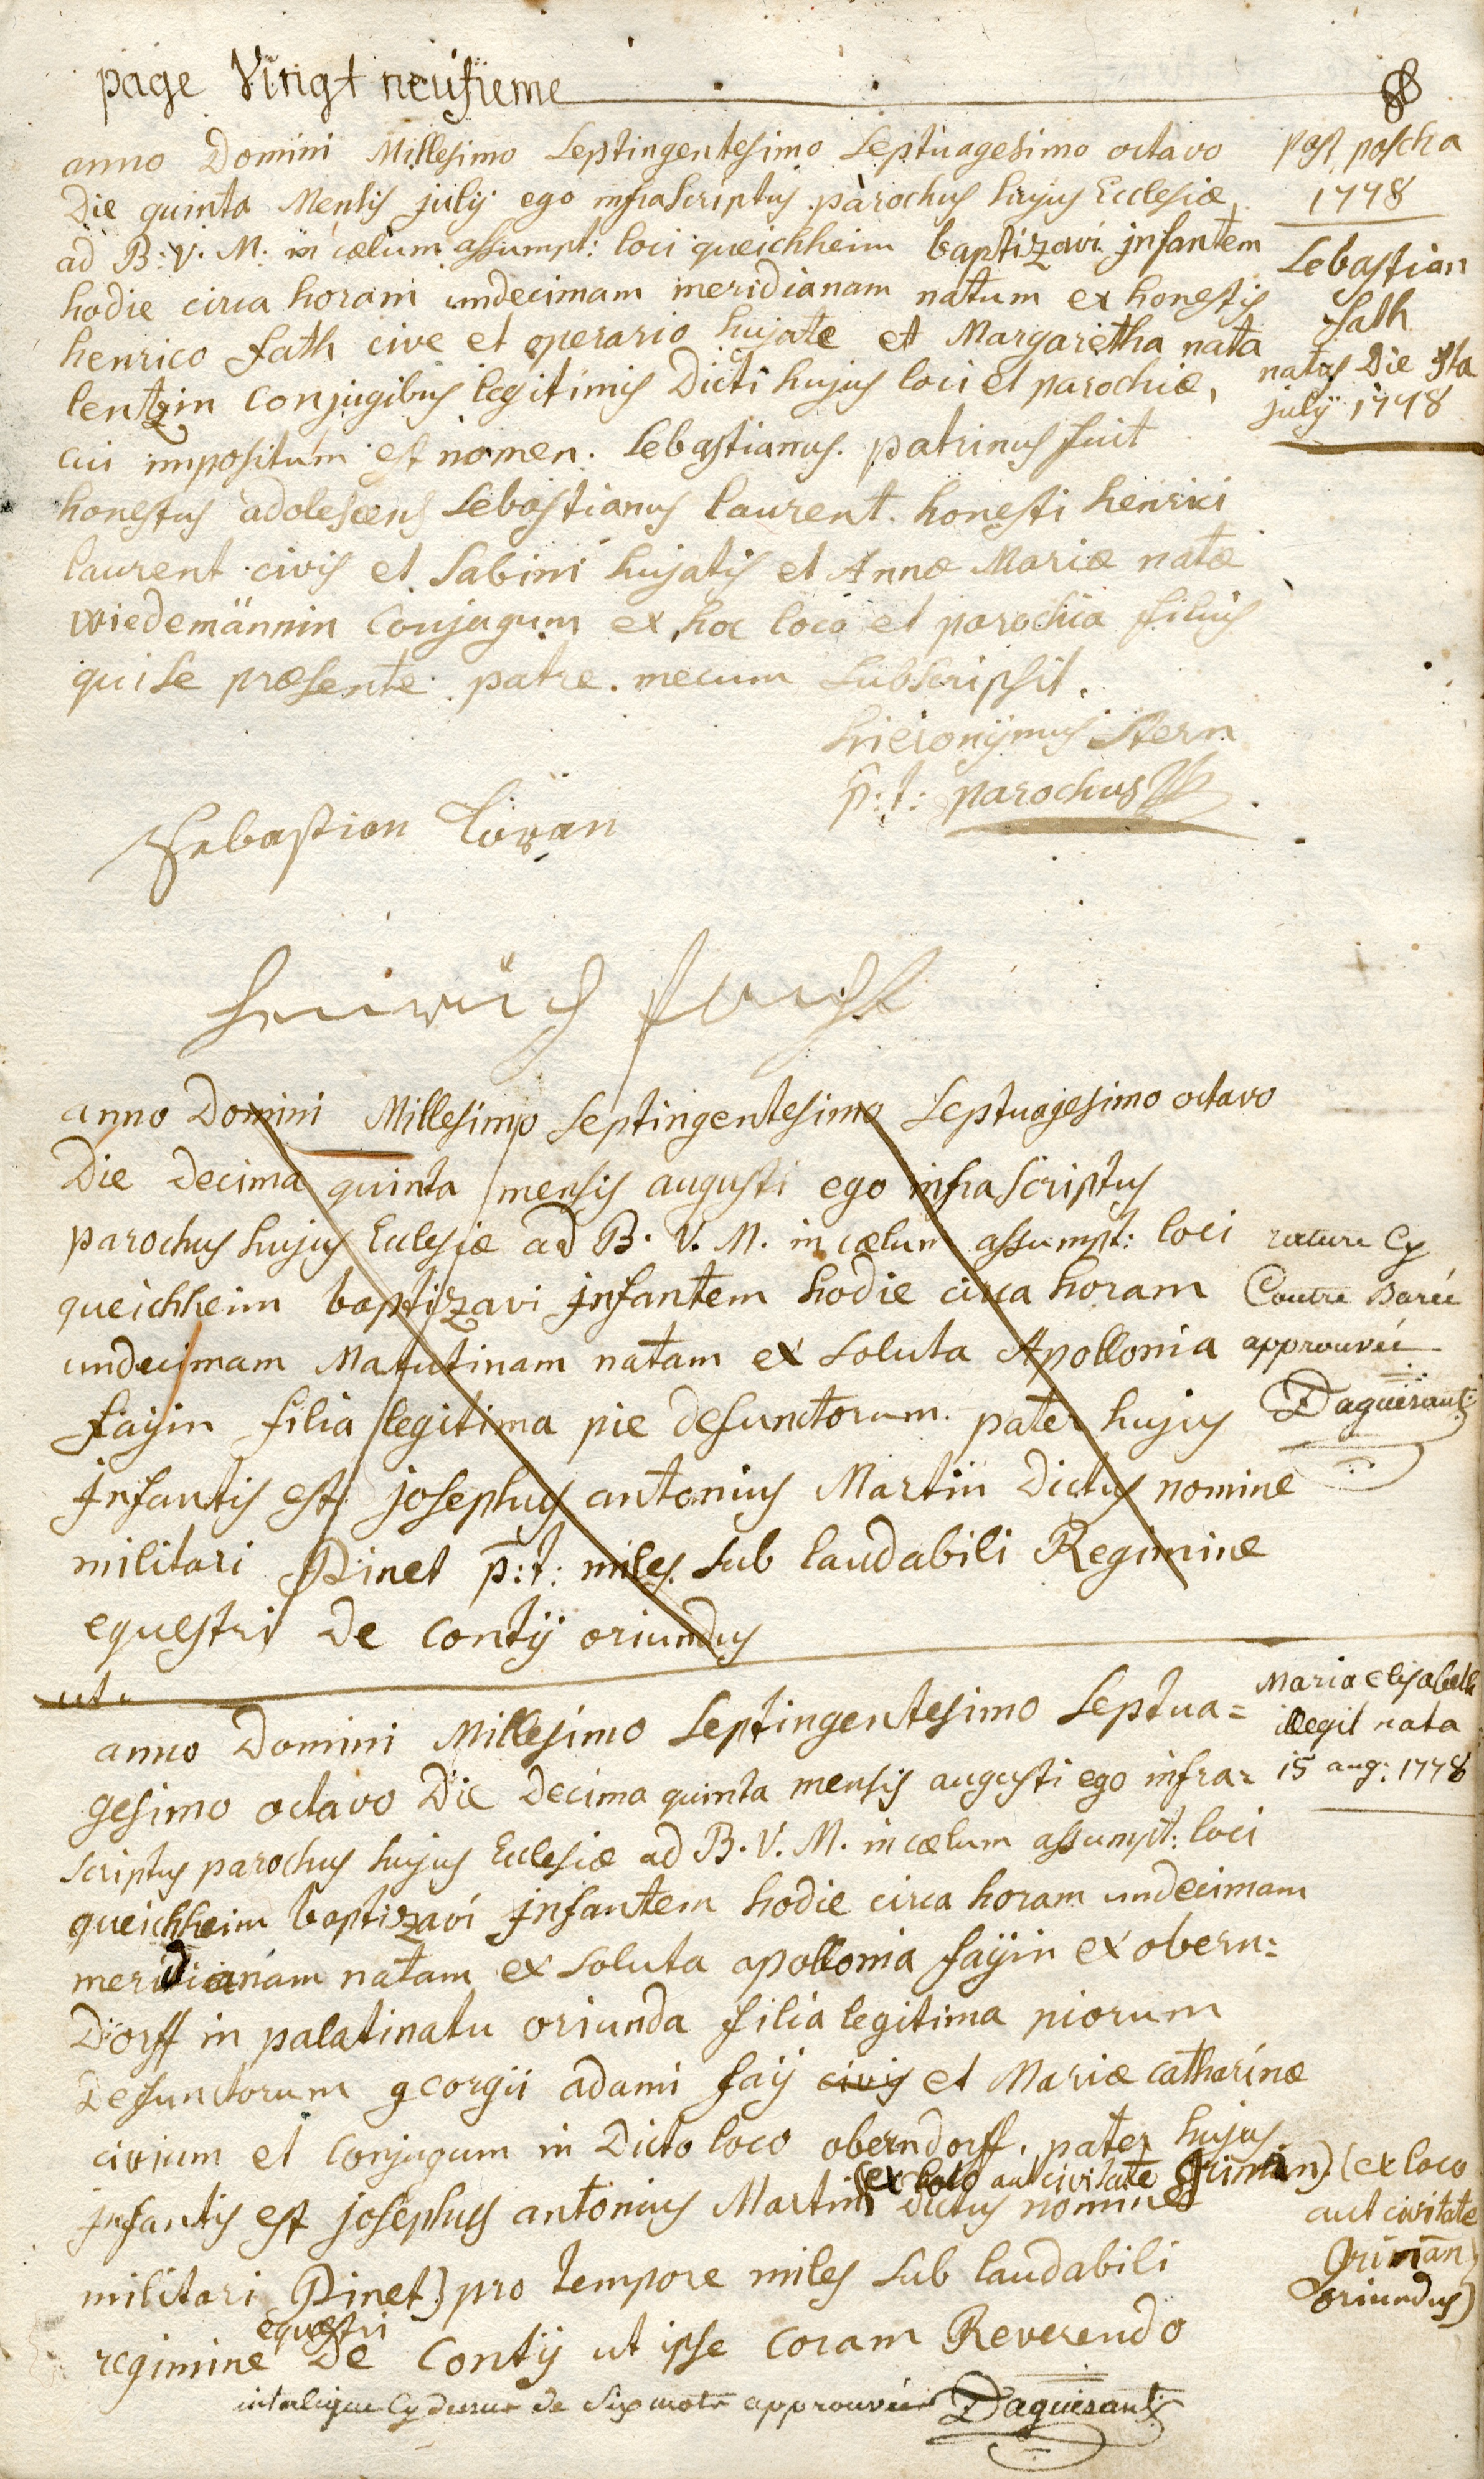 page Vingt neufieme
anno Domini Millesimo Septingentesimo Septuagesimo octavo
Die quinta Mensis julij ego infrascriptus parochus hujus Ecclesiæ
ad B: V. M: in cælum assumpt: loci queichheim baptizavi jnfantem
hodie circa horam undecimam meridianam natum ex honestis
henrico fath cive et operario hujate et Margaretha nata
lentzin Conjugibus legitimis Dicti hujus loci et parochiæ,
cui impositum est nomen. Sebastianus. patrinus fuit
honestus adolescens Sebastianus laurent. honesti henrici
laurent civis et Sabini hujatis et Annæ Mariæ natæ
wiedemännin Conjugum ex hoc loco et parochia filius
qui se præsente patre. mecum Subscripsit.
hieronijmus Stern
p: t: parochus
post pascha
1778
Sebastian
fath
natus Die 5ta
julij 1778
Sebastian
anno Domini Millesimo Septingentesimo Septuagesimo octavo
Die Decima quinta mensis augusti ego infrascriptus
parochus hujus Ecclesiæ ad B. V. M. in cælum assumpt: loci
queichheim baptizavi jnfantem hodie circa horam
undecimam Matutinam natam ex Soluta Apollonia
fayin filia legitima pie defunctorum. pater hujus
jnfantis est josephus antonius Martin Dictus nomine
militari Pinet p: t: miles Sub laudabili Regimine
equestri De Contij oriundus
ut
rature Cy
Contre Barée
approuvée
Daguesant
anno Domini Millesimo Septingentesimo Septua=
gesimo octavo Die Decima quinta mensis augusti ego infra=
scriptus parochus hujus Ecclesiæ ad B. V. M. in cælum assumpt: loci
queichheim baptizavi jnfantem hodie circa horam undecimam
meridianam natam ex Soluta apollonia fayin ex obern=
Dorff in palatinatu oriunda filia legitima piorum
Defunctorum georgii adami fay civis et Mariæ Catharinæ
civium et Conjugum in Dicto loco oberndorff. pater hujus
(ex loco aut civitate Griman)
jnfantis est josephus antonius Martin Dictus nomine
militari Pinet) pro tempore miles Sub laudabili
equestri
regimine De Contij ut ipse Coram Reverendo
interligne Cy dessus de Six mots approuvée Daguesant
Maria Elisabeth
illegit nata
15 aug: 1778
(ex loco
aut civitate
Griman
oriundus)